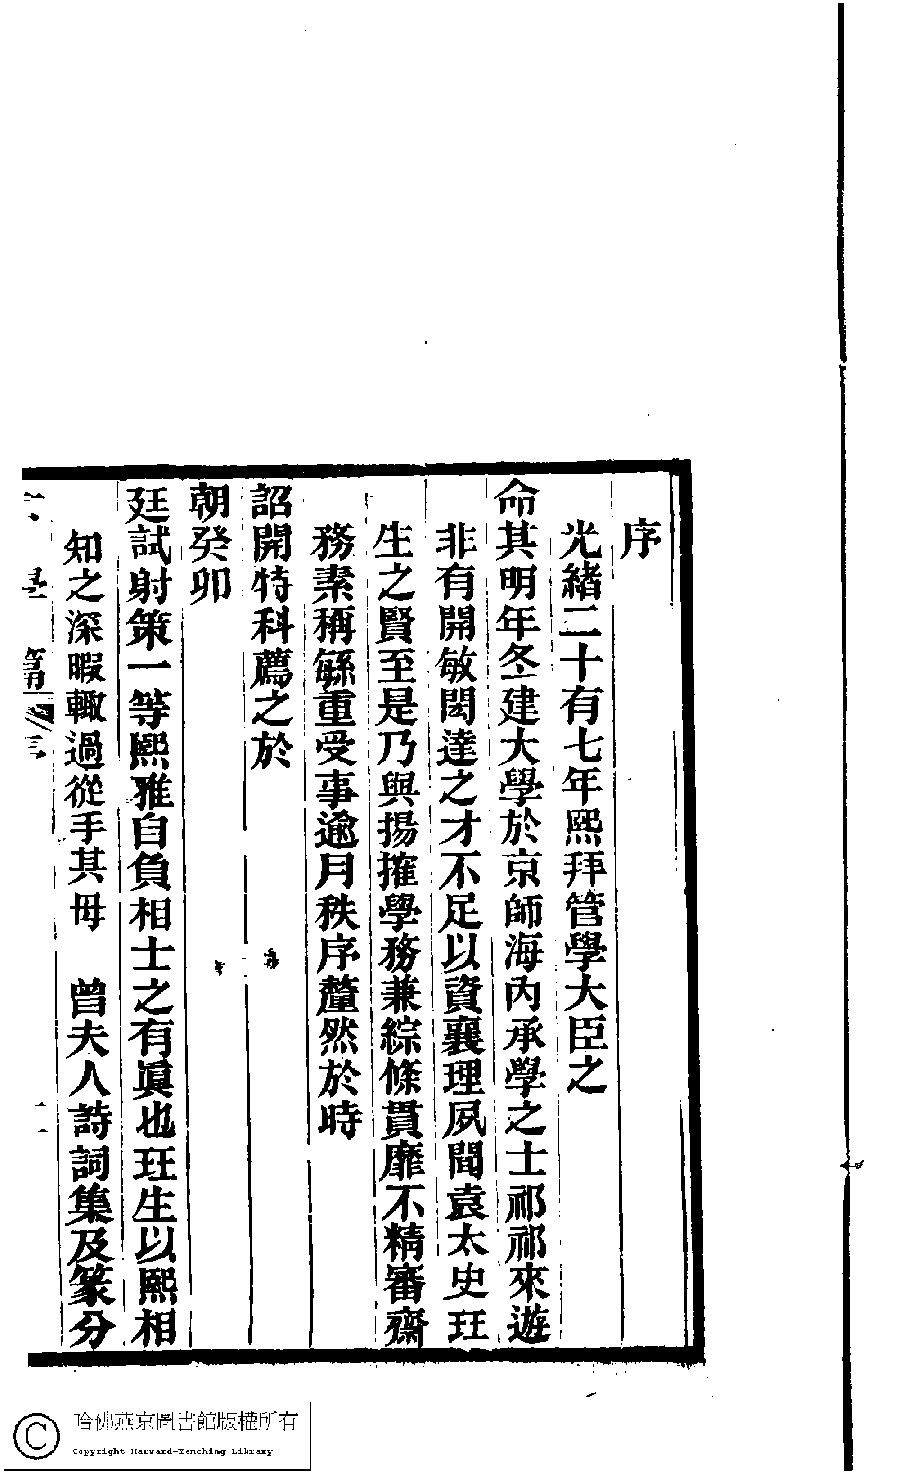 序
光緒二十有七年熙拜管學大臣之
命其明年冬建大學於京師海內承學之士祁祁來遊
非有開敏閎達之才不足以資襄理夙聞袁太史玨
生之賢至是乃與揚搉學務兼綜條貫靡不精審齋
務素稱緐重受事逾月秩序釐然於時
詔開特科薦之於
朝癸卯
廷試射策一等熙雅自負相士之有眞也玨生以熙相
知之深暇輙過從手其毋 曾夫人詩詞集及篆分
哈佛燕京圖書館版權所有
Copyright Harvard-Yenching Library